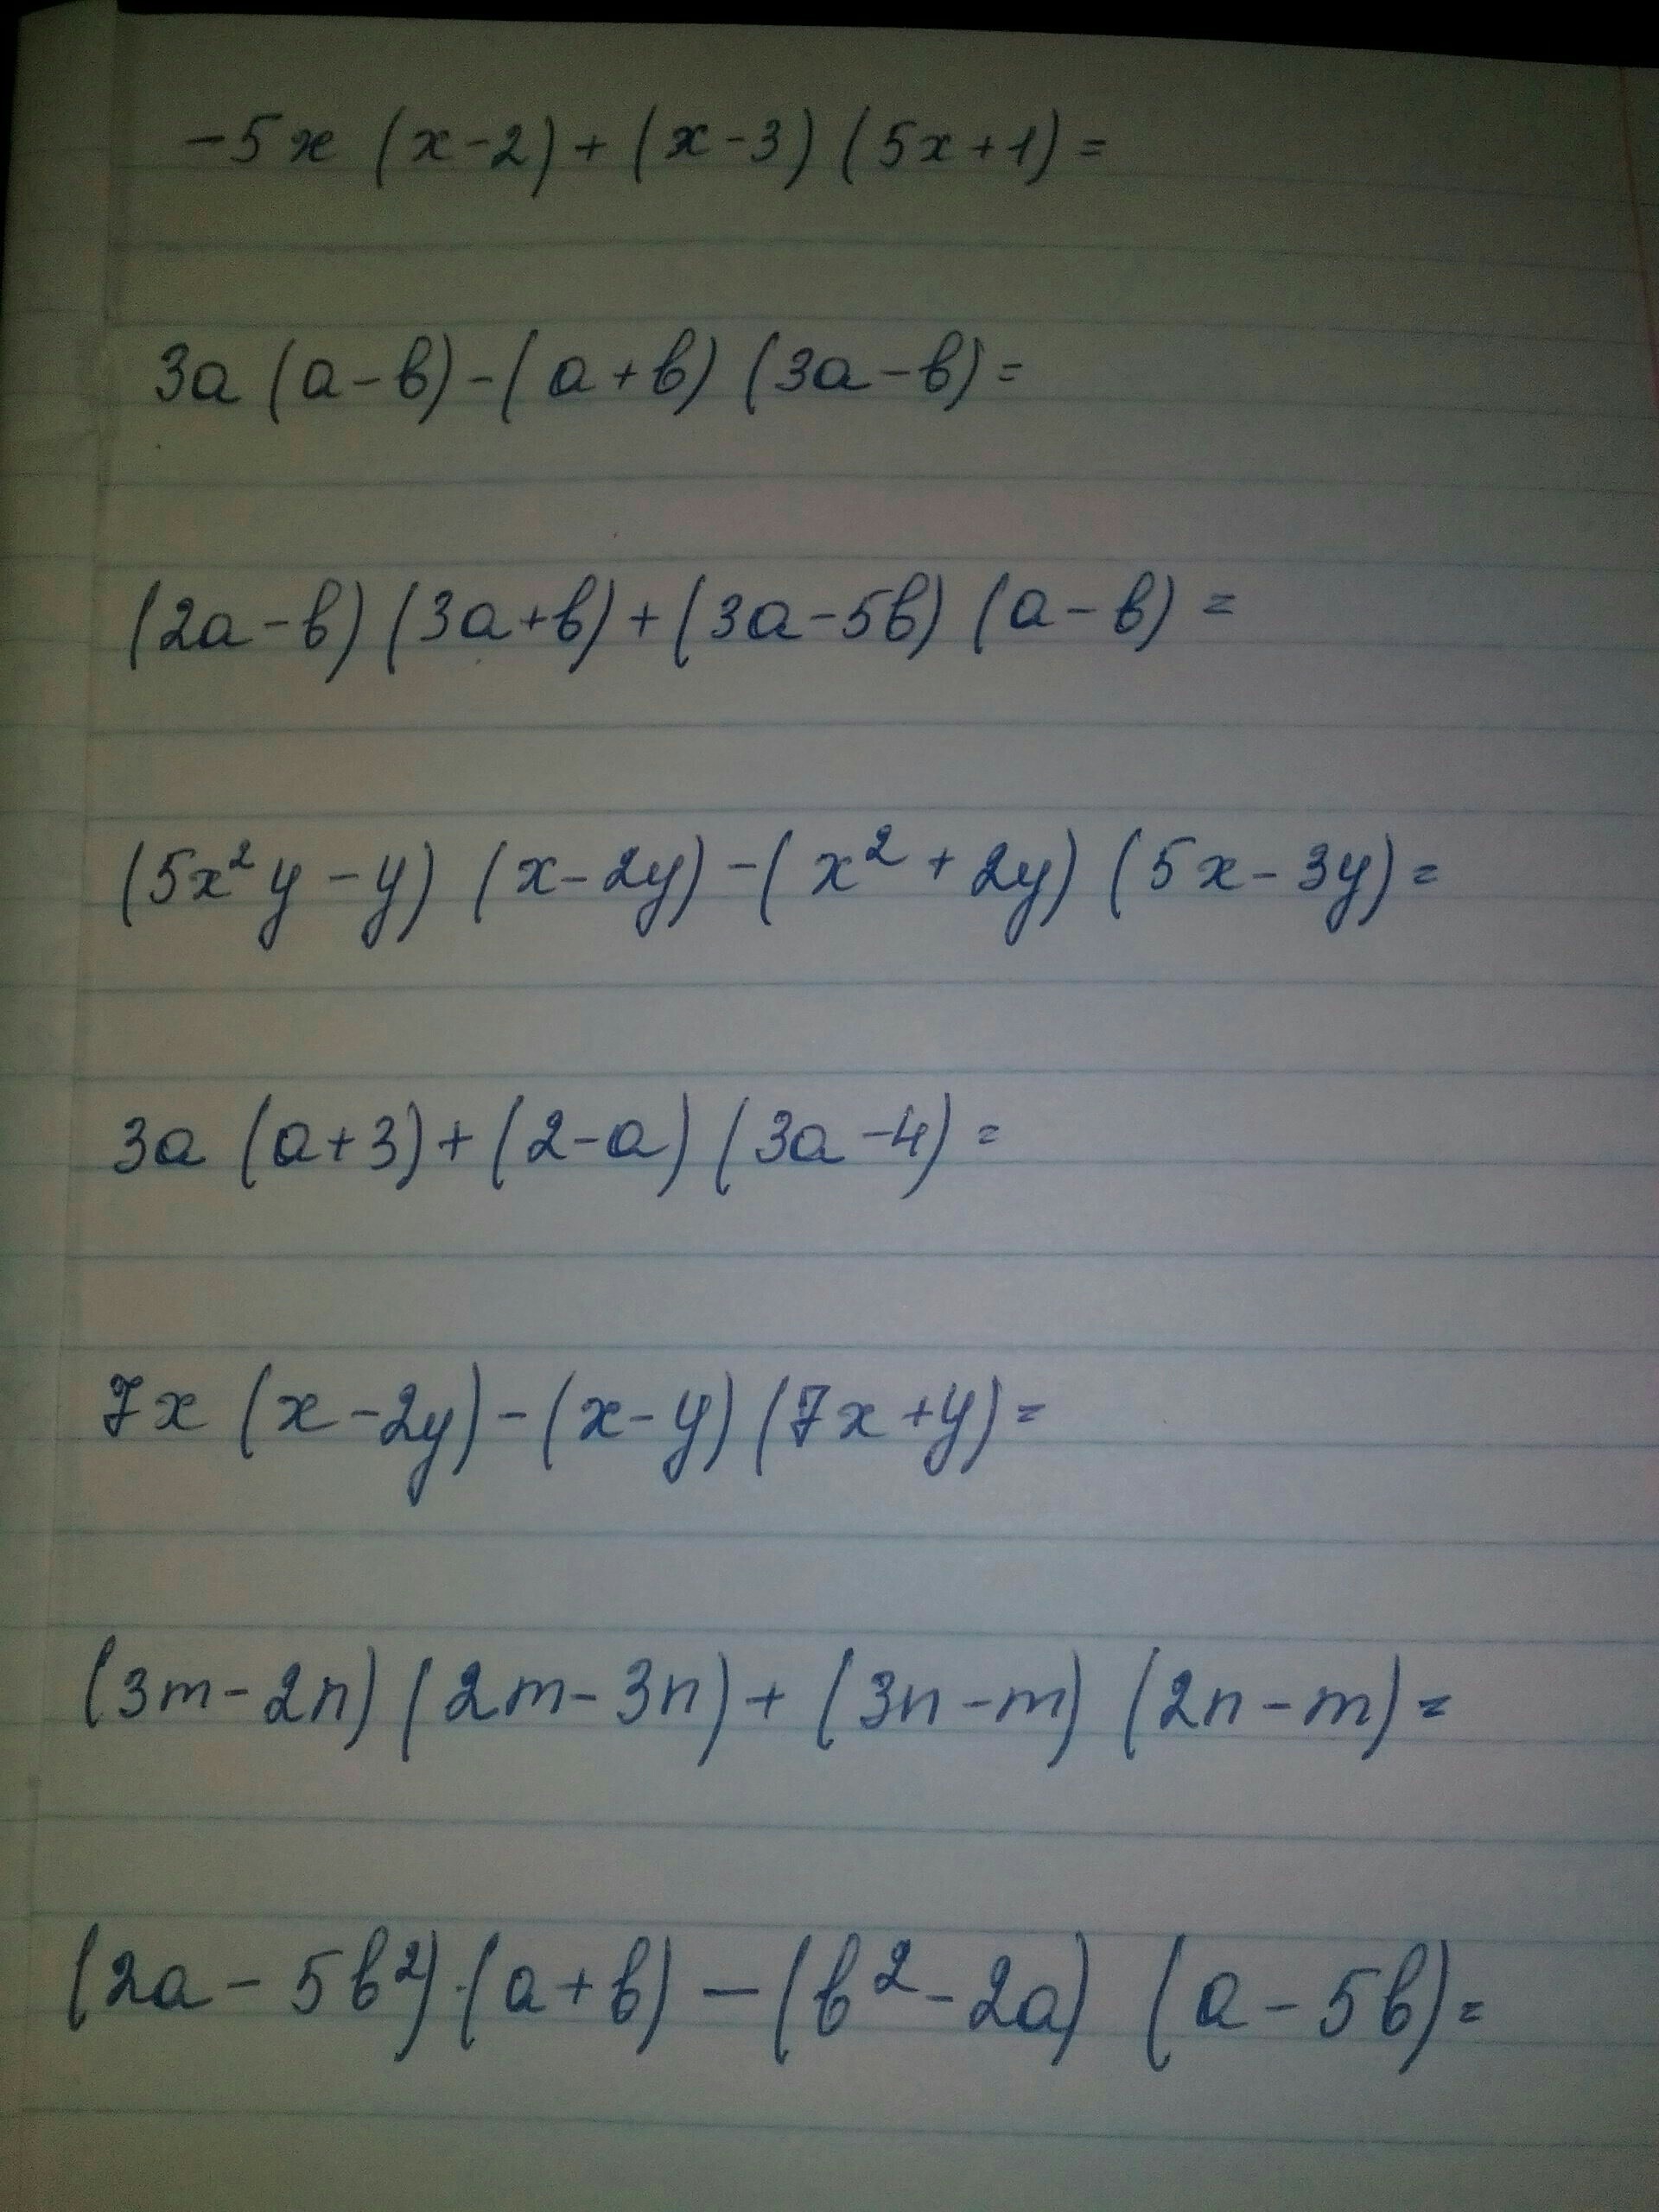 -5x (x-2)+(x-3)(5x+1)=
3a(a-в)-(a+в)(3a-в)=
(2a-в)(3a+в)+(3a-5в)(a-в)=
(5x²y-y)(x-2y)-(x²+2y)(5x-3y)=
3a(a+3)+(2-a)(3a-4)=
7x(x-2y)-(x-y)(7x+y)=
(3m-2n)(2m-3n)+(3n-m)(2n-m)=
(2a-5в²)·(a+в)-(в²-2a)(a-5в)=